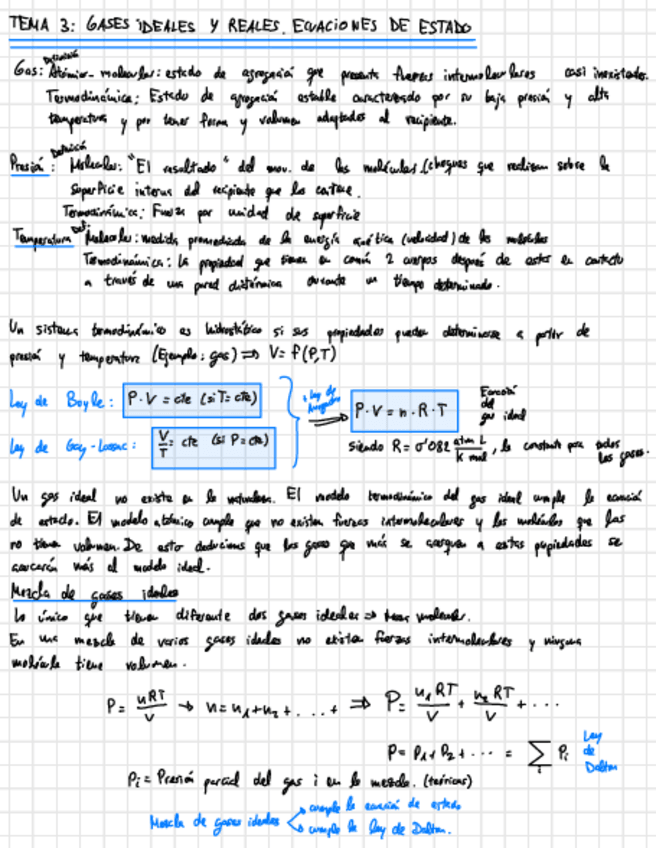 TEMA 3: GASES IDEALES Y REALES. ECUACIONES DE ESTADO
Definición
Gas: Atómico-molecular: estado de agregación que presenta fuerzas intermoleculares casi inexistentes.
Termodinámica: Estado de agregación estable caracterizado por su baja presión y alta
temperatura y por tener forma y volumen adaptados al recipiente.
Definición
Presión: Molecular: "El resultado" del mov. de las moléculas (choques que realizan sobre la
superficie interna del recipiente que las contiene.
Termodinámica: Fuerza por unidad de superficie
Temperatura Def Molecular: medida promediada de la energía cinética (velocidad) de las moléculas
Termodinámica: La propiedad que tienen en común 2 cuerpos después de estar en contacto
a través de una pared diatérmica durante un tiempo determinado.
Un sistema termodinámico es hidrostático si sus propiedades pueden determinarse a partir de
presión y temperatura (Ejemplo: gas) ⇒ V = f(P,T)
Ley de Boyle: P·V = cte (si T = cte)
Ley de Gay-Lussac: V/T = cte (si P = cte)
+ Ley de Avogadro
⇒ P·V = n·R·T
Ecuación
del
gas ideal
siendo R = 0'082 atm L / K mol, la constante para todos
los gases.
Un gas ideal no existe en la naturaleza. El modelo termodinámico del gas ideal cumple la ecuación
de estado. El modelo atómico cumple que no existen fuerzas intermoleculares y las moléculas que las
no tienen volumen. De esto deducimos que los gases que más se acerquen a estas propiedades se
acercarán más al modelo ideal.
Mezcla de gases ideales
Lo único que tienen diferente dos gases ideales ⇒ masa molecular.
En una mezcla de varios gases ideales no existen fuerzas intermoleculares y ninguna
molécula tiene volumen.
P = nRT/V → n = n₁+n₂+ ...+ ⇒ P = n₁RT/V + n₂RT/V + ...
P = P₁+P₂+ ... = Σᵢ Pᵢ
Ley
de
Dalton
Pᵢ = Presión parcial del gas i en la mezcla. (teóricas)
cumple la ecuación de estado
Mezcla de gases ideales
cumple la ley de Dalton.